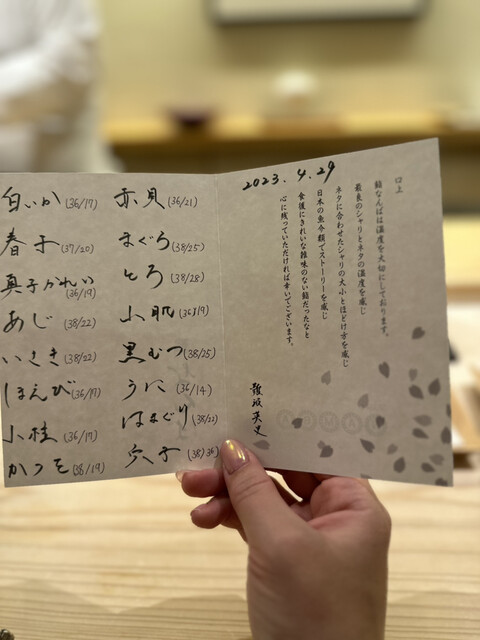 白いか (36/17)
春子 (37/20)
真子かれい (36/19)
あじ (38/22)
いさき (38/22)
ほえび (36/17)
小柱 (36/17)
かつを (38/19)
赤貝 (36/21)
まぐろ (38/25)
とろ (38/28)
小肌 (36/19)
黒むつ (38/25)
うに (36/14)
はまぐり (38/22)
穴子 (38/36)
2023.4.29
口上
鮨なんばは温度を大切にしております。
最良のシャリとネタの温度を感じ
ネタに合わせたシャリの大小とほどけ方を感じ
日本の魚介類でストーリーを感じ
食後にきれいな雑味のない鮨だったなと
心に残っていただければ幸いでございます。
難波英史